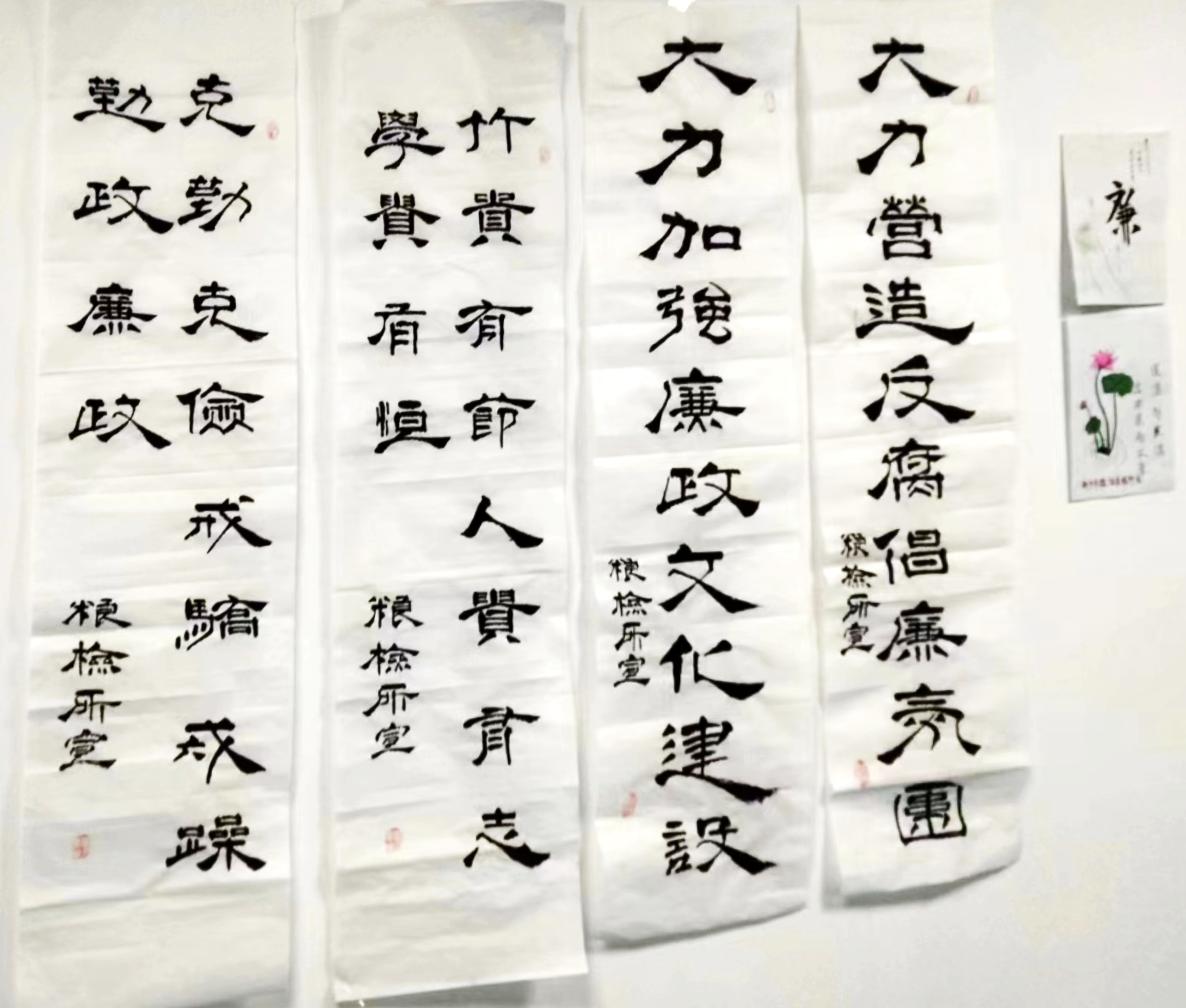 廉
大力營造反腐倡廉氛圍
粮檢所宣
大力加強廉政文化建設
粮檢所宣
竹貴有節人貴有志
學貴有恒
粮檢所宣
克勤克儉戒驕戒躁
勤政廉政
粮檢所宣